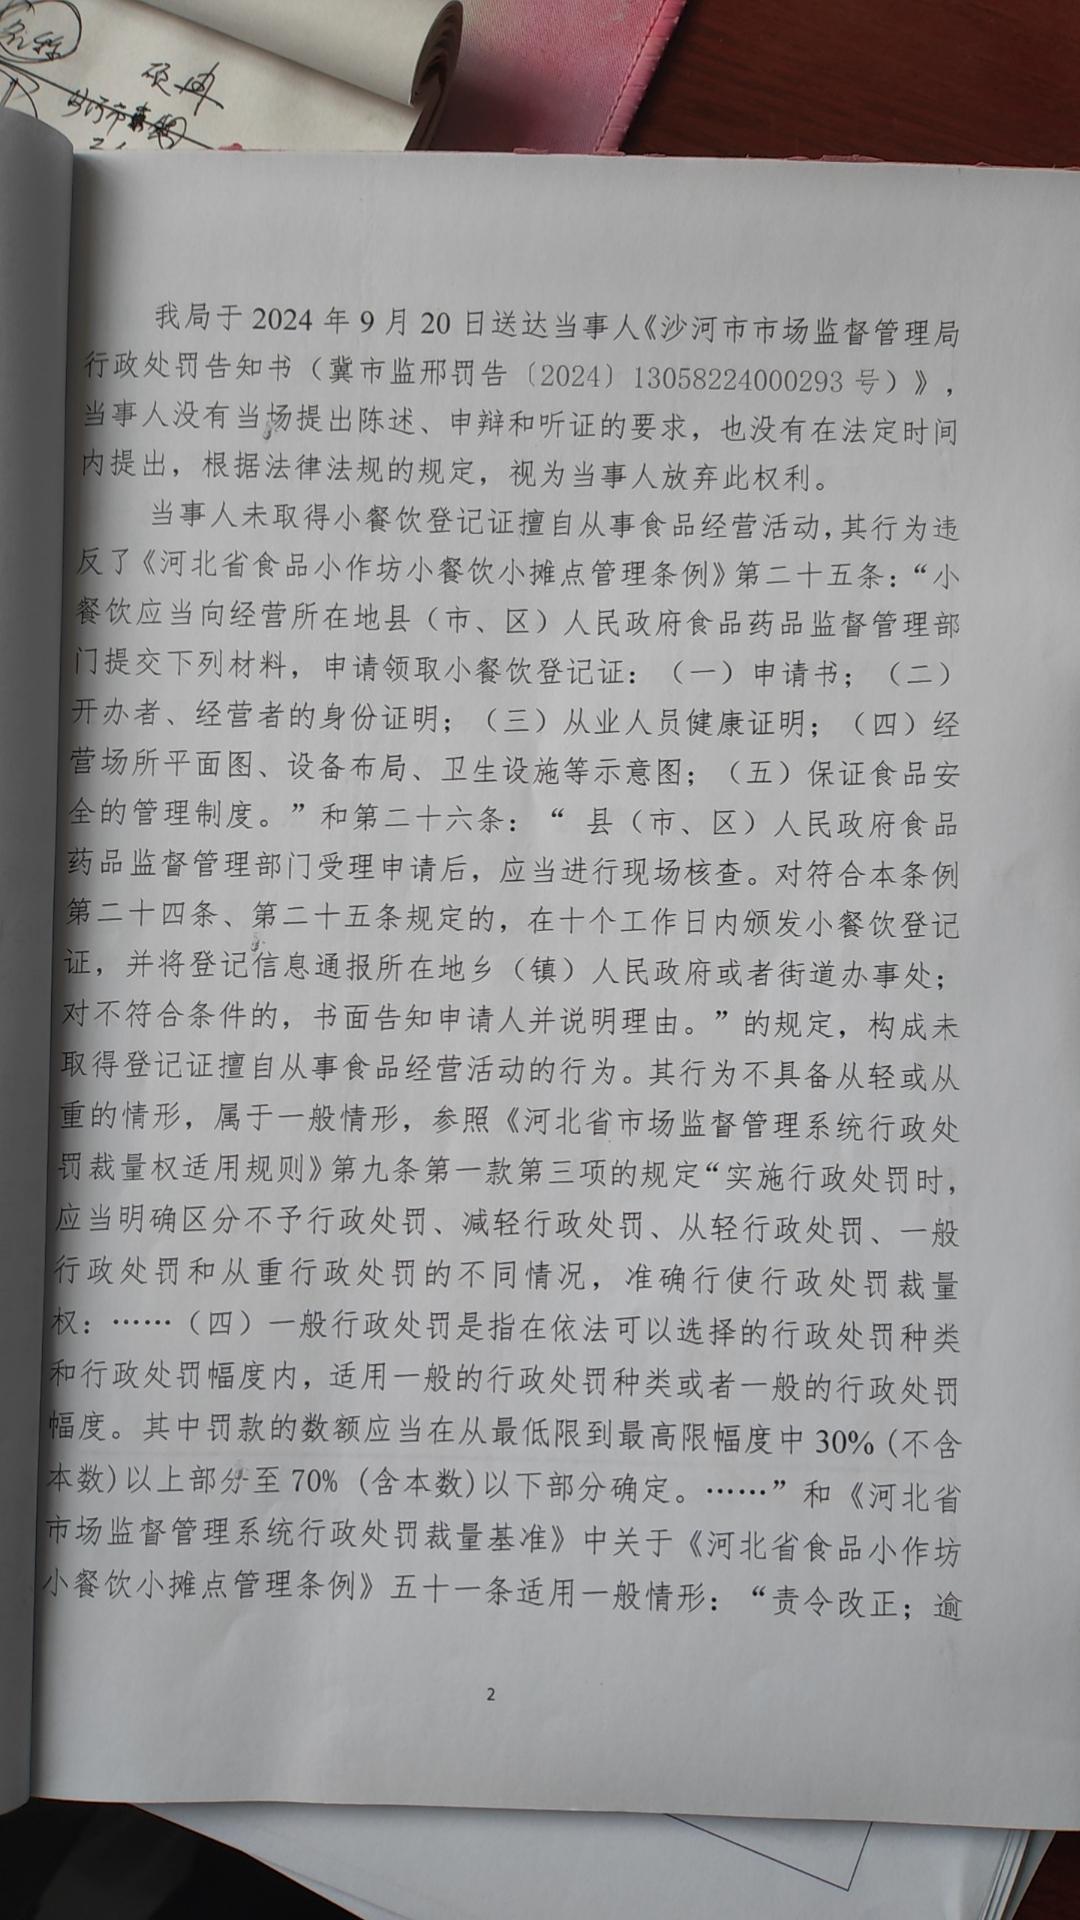 名称
沙河市
我局于 2024 年 9 月 20 日送达当事人《沙河市市场监督管理局
行政处罚告知书（冀市监邢罚告〔2024〕13058224000293 号）》，
当事人没有当场提出陈述、申辩和听证的要求，也没有在法定时间
内提出，根据法律法规的规定，视为当事人放弃此权利。
当事人未取得小餐饮登记证擅自从事食品经营活动，其行为违
反了《河北省食品小作坊小餐饮小摊点管理条例》第二十五条：“小
餐饮应当向经营所在地县（市、区）人民政府食品药品监督管理部
门提交下列材料，申请领取小餐饮登记证：（一）申请书；（二）
开办者、经营者的身份证明；（三）从业人员健康证明；（四）经
营场所平面图、设备布局、卫生设施等示意图；（五）保证食品安
全的管理制度。”和第二十六条：“ 县（市、区）人民政府食品
药品监督管理部门受理申请后，应当进行现场核查。对符合本条例
第二十四条、第二十五条规定的，在十个工作日内颁发小餐饮登记
证，并将登记信息通报所在地乡（镇）人民政府或者街道办事处；
对不符合条件的，书面告知申请人并说明理由。”的规定，构成未
取得登记证擅自从事食品经营活动的行为。其行为不具备从轻或从
重的情形，属于一般情形，参照《河北省市场监督管理系统行政处
罚裁量权适用规则》第九条第一款第三项的规定“实施行政处罚时，
应当明确区分不予行政处罚、减轻行政处罚、从轻行政处罚、一般
行政处罚和从重行政处罚的不同情况，准确行使行政处罚裁量
权：……（四）一般行政处罚是指在依法可以选择的行政处罚种类
和行政处罚幅度内，适用一般的行政处罚种类或者一般的行政处罚
幅度。其中罚款的数额应当在从最低限到最高限幅度中 30%（不含
本数）以上部分至 70%（含本数）以下部分确定。……”和《河北省
市场监督管理系统行政处罚裁量基准》中关于《河北省食品小作坊
小餐饮小摊点管理条例》五十一条适用一般情形：“责令改正；逾
2